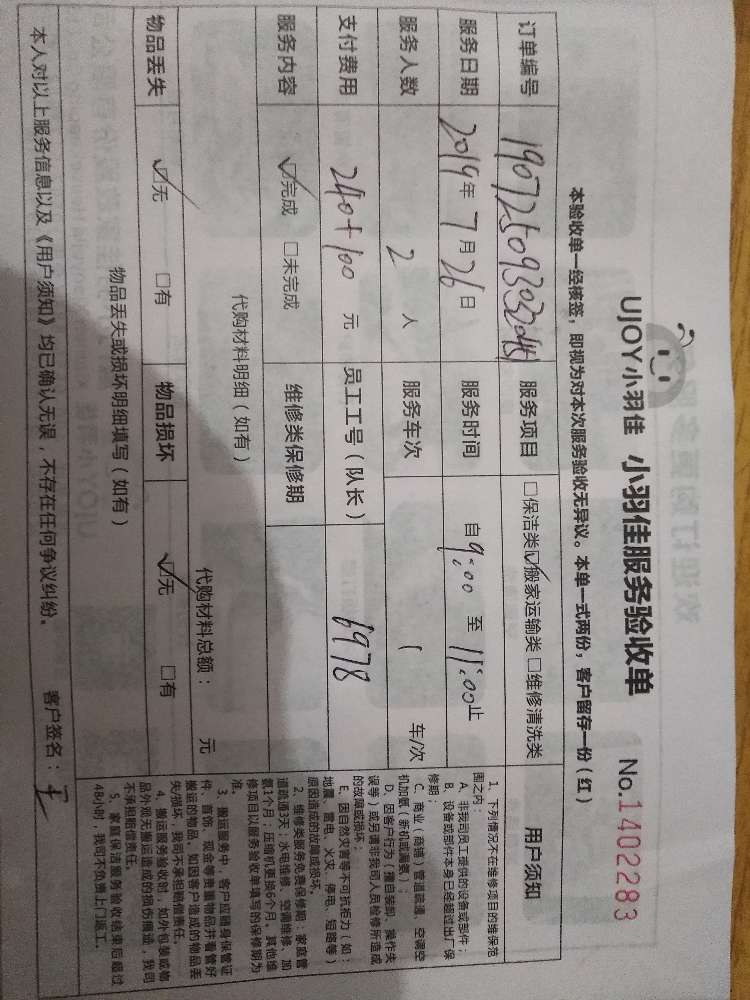 UJOY小羽佳 小羽佳服务验收单 No.1402283
本验收单一经核签，即视为对本次服务验收无异议。本单一式两份，客户留存一份（红）
订单编号 服务项目 □保洁类☑搬家运输类 □维修清洗类
服务日期 2019年 7月 26日 服务时间 自 9:00 至 11:00止
服务人数 2 人 服务车次 1 车/次
支付费用 240+100 元 员工工号（队长） 6978
服务内容 ☑完成 □未完成 维修类保修期
代购材料明细（如有）
代购材料总额： 元
物品丢失 ☑无 □有 物品损坏 ☑无 □有
物品丢失或损坏明细填写（如有）
本人对以上服务信息以及《用户须知》均已确认无误，不存在任何争议纠纷。 客户签名：
用户须知
1、下列情况不在维修项目的维保范
围之内：
A、非我司员工提供的设备或部件；
B、设备或部件本身已经超过出厂保
修期；
C、商业（商铺）管道疏通、空调空
机加氨（新机或漏氨）；
D、因客户行为（擅自装卸、操作失
误等）或另请非我司人员检修所造成
的故障或损坏；
E、因自然灾害等不可抗拒力（如：
地震、雷电、火灾、停电、短路等）
原因造成的故障或损坏。
2、维修类服务免费保修期：家庭管
道疏通3天，水电维修、空调维修、加
氨1个月，压缩机更换6个月。其他维
修项目以服务验收单填写的保修期为
准。
3、搬运服务中，客户应随身保管证
件、首饰、现金等贵重物品并看管好
搬运的物品。如因客户造成的物品丢
失/损坏，我司不承担赔偿责任。
4、搬运服务验收时，如外包装或物
品外观无搬运造成的损伤痕迹，我司
不承担赔偿责任。
5、家庭保洁服务验收结束后超过
48小时，我司不负责上门返工。